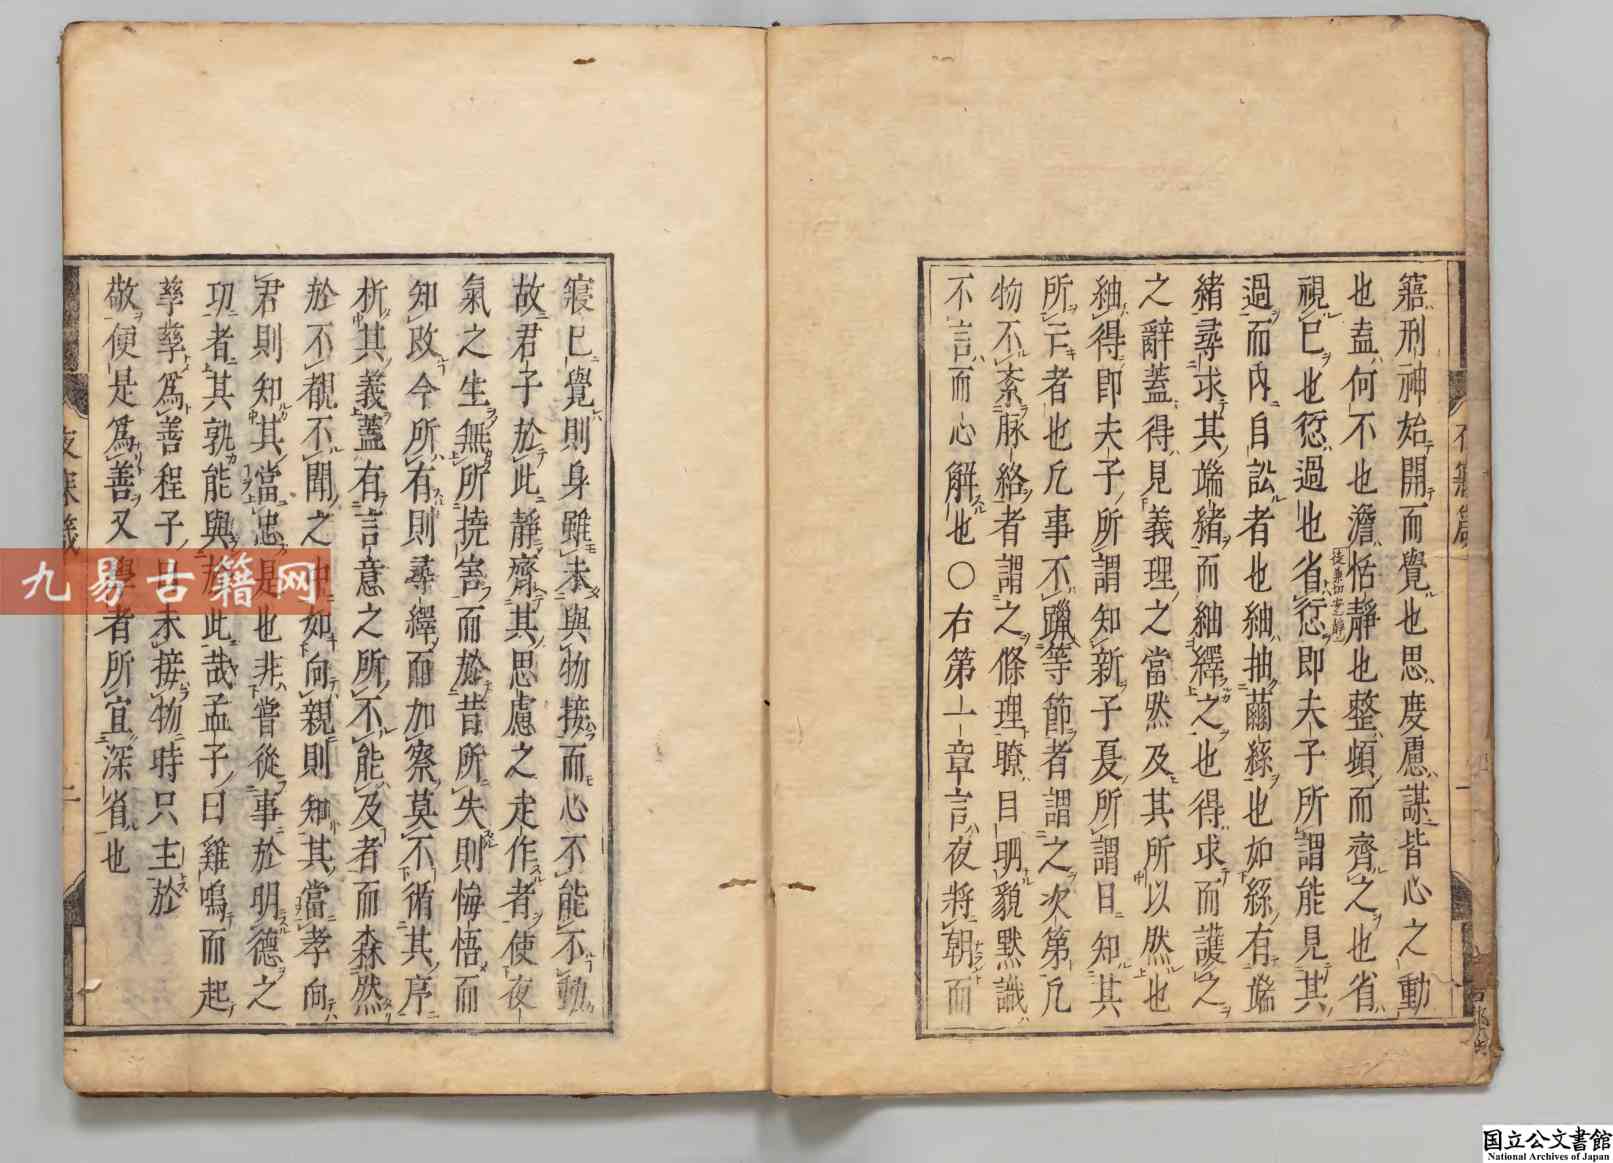 寤刑神始開而覺也思度慮謀皆心之動
也盍何不也澹恬靜也整頓而齊之也省
徒兼切安靜
視已也愆過也省愆即夫子所謂能見其
過而內自訟者也紬抽繭絲也如絲有端
緒尋求其端緒而紬繹之也得求而護之
之辭蓋得見義理之當然及其所以然也
紬得即夫子所謂知新子夏所謂日知其
所亡者也凡事不躐等節者謂之次第凡
物不紊脉絡者謂之條理瞭目明貌默識
不言而心解也○右第一章言夜將朝而
寢已覺則身雖未與物接而心不能不動
故君子於此靜齋其思慮之走作者使夜
氣之生無所撓害而於昔所失則悔悟而
知改今所有則尋繹而加察莫不循其序
析其義蓋有言意之所不能及者而森然
於不覩不聞之中如向親則知其當孝向
君則知其當忠是也非嘗從事於明德之
功者其孰能與於此哉孟子曰雞鳴而起
孳孳爲善程子曰未接物時只主於
敬便是爲善又學者所宜深省也
九易古籍网
国立公文書館
National Archives of Japan